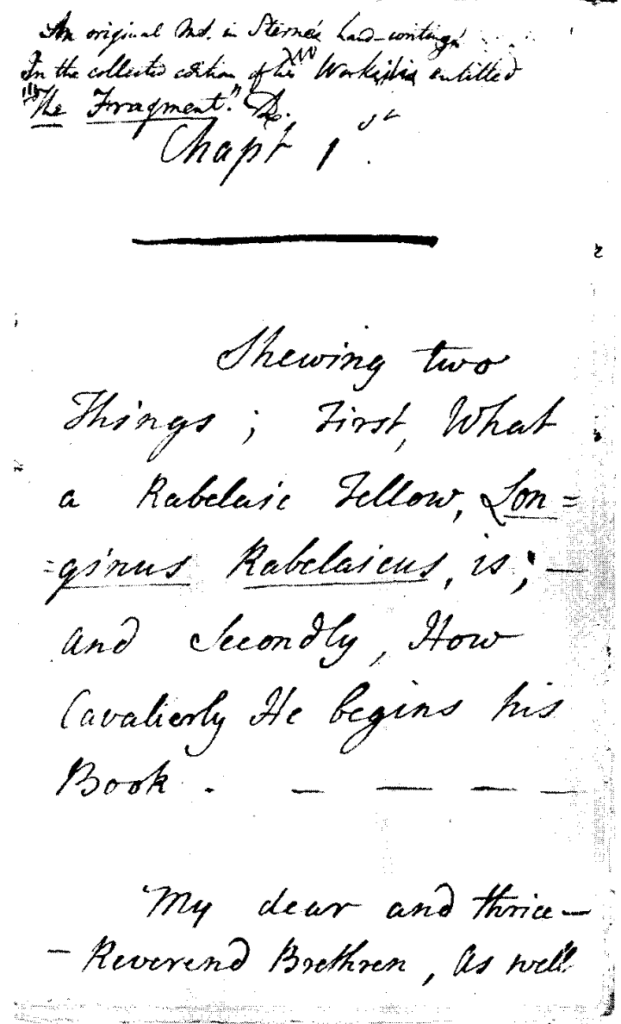 An original Ms. in Sterne's hand-writing
In the collected edition of his Works it is entitled
"The Fragment."
Chapt 1st.
Shewing two
Things; First, What
a Rabelaic Fellow, Lon=
=ginus Rabelaicus, is; —
and Secondly, How
Cavalierly He begins his
Book. — — — —
My dear and thrice —
— Reverend Brethren, as well